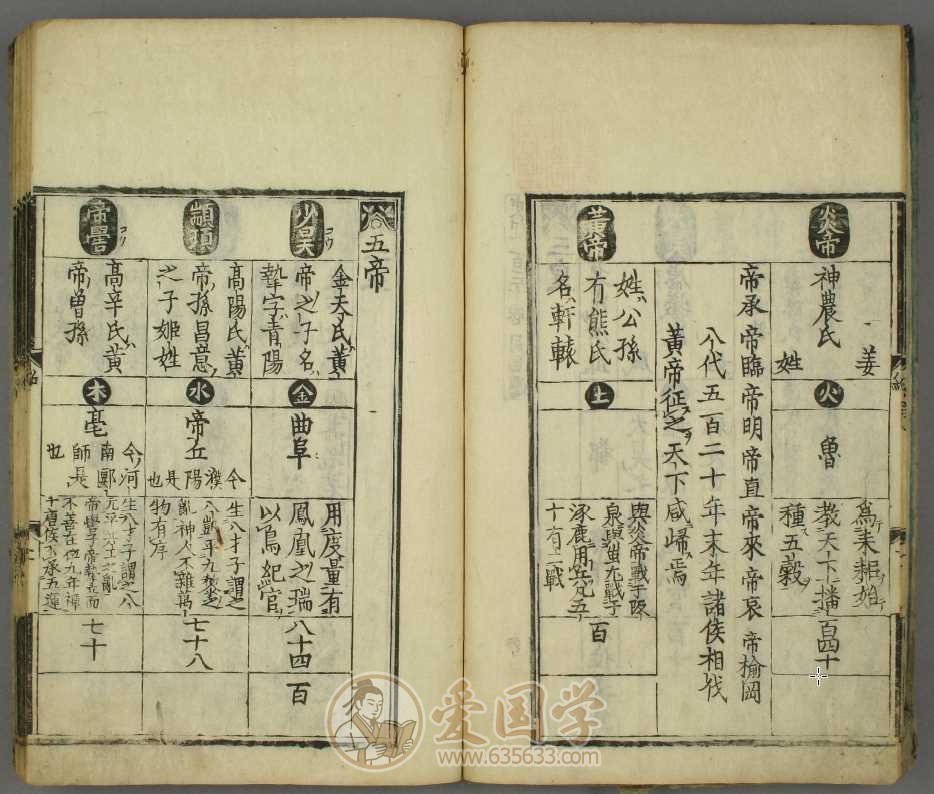 炎帝
神農氏 姜
姓
火
魯
爲耒耜始
教天下播
種五穀
百四十
帝承 帝臨 帝明 帝直 帝來 帝哀 帝榆岡
八代五百二十年末年諸侯相伐
黃帝征之天下咸歸焉
黃帝
姓公孫
有熊氏
名軒轅
土
與炎帝戰于阪
泉與蚩尤戰于
涿鹿用兵凡五
十有二戰
百
五帝
少昊
金天氏黃
帝之子名
摯字青陽
金
曲阜
用度量有
鳳凰之瑞
以鳥紀官
八十四
百
顓頊
高陽氏黃
帝孫昌意
之子姬姓
水
帝丘
今濮陽是也
生八才子謂之
八凱平九黎之
亂神人不雜萬
物有序
七十八
帝嚳
高辛氏黃
帝曾孫
木
亳
今河
南郾
師是
也
生八才子謂之八
元
帝嚳子帝摯立而
不善在位九年禪
七十
爱国学
www.635633.com